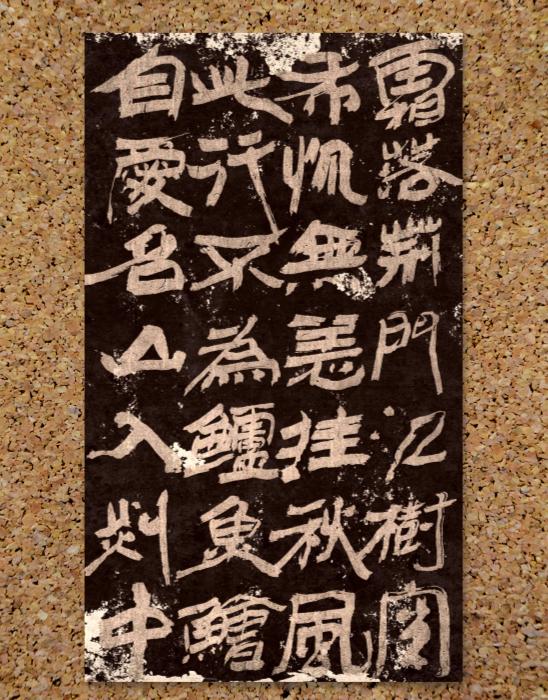 霜落荆門江樹空
布帆無恙挂秋風
此行不為鱸魚鱠
自愛名山入剡中